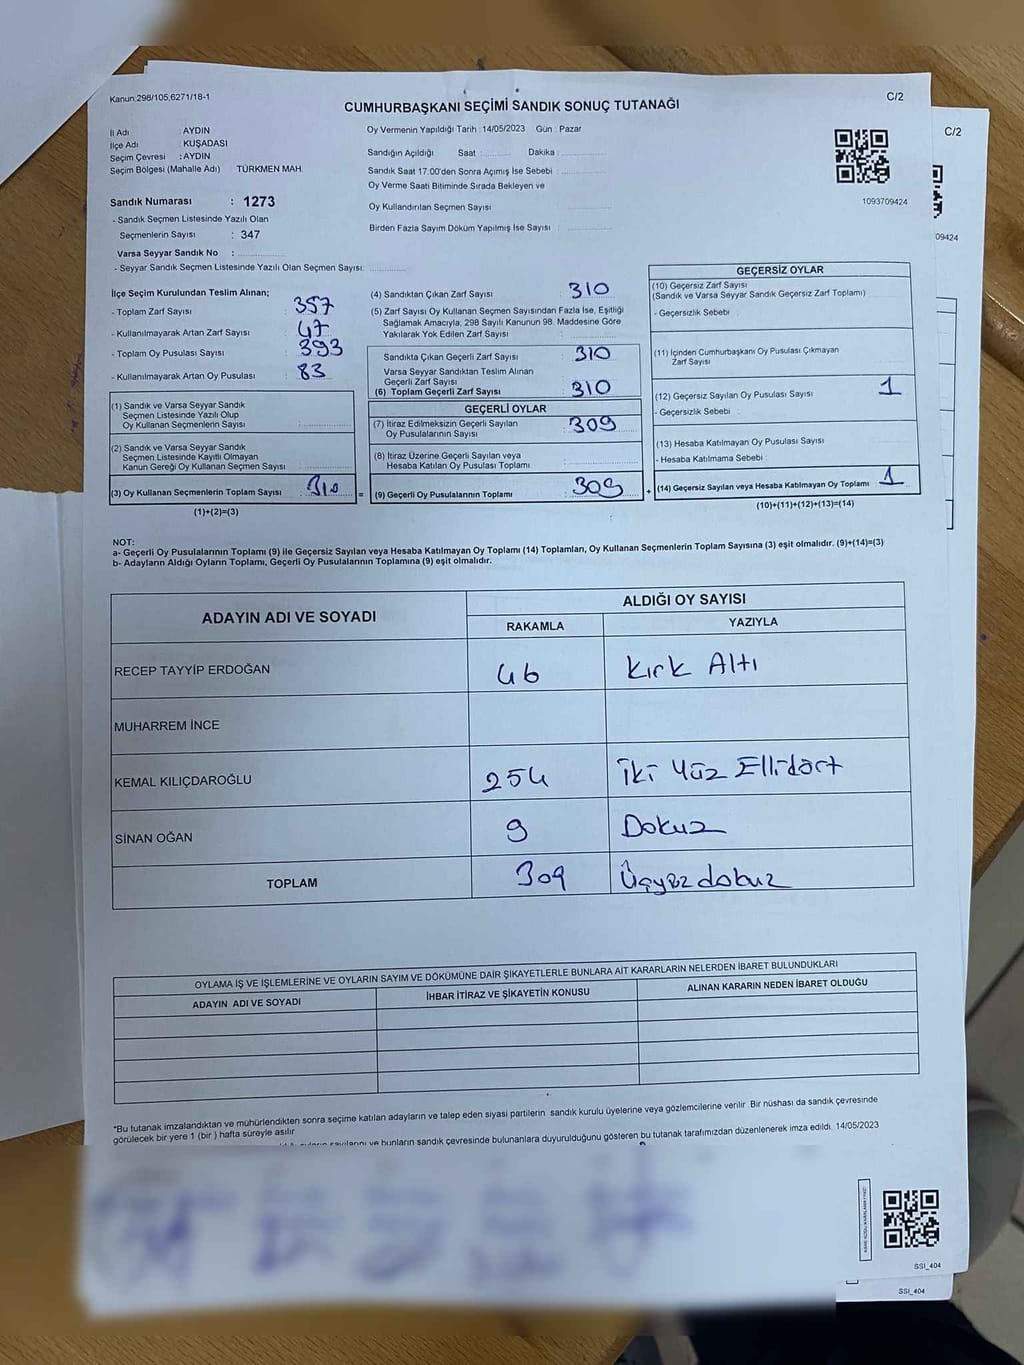 Kanun:298/105,6271/18-1
CUMHURBAŞKANI SEÇİMİ SANDIK SONUÇ TUTANAĞI
C/2
İl Adı : AYDIN
İlçe Adı : KUŞADASI
Seçim Çevresi : AYDIN
Seçim Bölgesi (Mahalle Adı) TÜRKMEN MAH.
Sandık Numarası : 1273
- Sandık Seçmen Listesinde Yazılı Olan
Seçmenlerin Sayısı : 347
Varsa Seyyar Sandık No :
- Seyyar Sandık Seçmen Listesinde Yazılı Olan Seçmen Sayısı:
Oy Vermenin Yapıldığı Tarih : 14/05/2023 Gün : Pazar
Sandığın Açıldığı Saat : Dakika :
Sandık Saat 17:00'den Sonra Açımış İse Sebebi :
Oy Verme Saati Bitiminde Sırada Bekleyen ve
Oy Kullandırılan Seçmen Sayısı
Birden Fazla Sayım Döküm Yapılmış İse Sayısı :
1093709424
C/2
09424
İlçe Seçim Kurulundan Teslim Alınan;
- Toplam Zarf Sayısı : 357
- Kullanılmayarak Artan Zarf Sayısı : 47
- Toplam Oy Pusulası Sayısı : 393
- Kullanılmayarak Artan Oy Pusulası : 83
(1) Sandık ve Varsa Seyyar Sandık
Seçmen Listesinde Yazılı Olup
Oy Kullanan Seçmenlerin Sayısı :
(2) Sandık ve Varsa Seyyar Sandık
Seçmen Listesinde Kayıtlı Olmayan
Kanun Gereği Oy Kullanan Seçmen Sayısı :
(3) Oy Kullanan Seçmenlerin Toplam Sayısı : 310
(1)+(2)=(3)
=
(4) Sandıktan Çıkan Zarf Sayısı : 310
(5) Zarf Sayısı Oy Kullanan Seçmen Sayısından Fazla İse, Eşitliği
Sağlamak Amacıyla; 298 Sayılı Kanunun 98. Maddesine Göre
Yakılarak Yok Edilen Zarf Sayısı :
Sandıkta Çıkan Geçerli Zarf Sayısı : 310
Varsa Seyyar Sandıktan Teslim Alınan
Geçerli Zarf Sayısı :
(6) Toplam Geçerli Zarf Sayısı : 310
GEÇERLİ OYLAR
(7) İtiraz Edilmeksizin Geçerli Sayılan
Oy Pusulalarının Sayısı : 309
(8) İtiraz Üzerine Geçerli Sayılan veya
Hesaba Katılan Oy Pusulası Toplamı :
(9) Geçerli Oy Pusulalarının Toplamı : 309
+
GEÇERSİZ OYLAR
(10) Geçersiz Zarf Sayısı :
(Sandık ve Varsa Seyyar Sandık Geçersiz Zarf Toplamı)
- Geçersizlik Sebebi :
(11) İçinden Cumhurbaşkanı Oy Pusulası Çıkmayan
Zarf Sayısı :
(12) Geçersiz Sayılan Oy Pusulası Sayısı : 1
- Geçersizlik Sebebi :
(13) Hesaba Katılmayan Oy Pusulası Sayısı :
- Hesaba Katılmama Sebebi :
(14) Geçersiz Sayılan veya Hesaba Katılmayan Oy Toplamı : 1
(10)+(11)+(12)+(13)=(14)
NOT:
a- Geçerli Oy Pusulalarının Toplamı (9) ile Geçersiz Sayılan veya Hesaba Katılmayan Oy Toplamı (14) Toplamları, Oy Kullanan Seçmenlerin Toplam Sayısına (3) eşit olmalıdır. (9)+(14)=(3)
b- Adayların Aldığı Oyların Toplamı, Geçerli Oy Pusulalarının Toplamına (9) eşit olmalıdır.
ADAYIN ADI VE SOYADI
ALDIĞI OY SAYISI
RAKAMLA YAZIYLA
RECEP TAYYİP ERDOĞAN 46 Kırk Altı
MUHARREM İNCE
KEMAL KILIÇDAROĞLU 254 İki Yüz Ellidört
SİNAN OĞAN 9 Dokuz
TOPLAM 309 Üçyüzdokuz
OYLAMA İŞ VE İŞLEMLERİNE VE OYLARIN SAYIM VE DÖKÜMÜNE DAİR ŞİKAYETLERLE BUNLARA AİT KARARLARIN NELERDEN İBARET BULUNDUKLARI
ADAYIN ADI VE SOYADI İHBAR İTİRAZ VE ŞİKAYETİN KONUSU ALINAN KARARIN NEDEN İBARET OLDUĞU
*Bu tutanak imzalandıktan ve mühürlendikten sonra seçime katılan adayların ve talep eden siyasi partilerin sandık kurulu üyelerine veya gözlemcilerine verilir. Bir nüshası da sandık çevresinde
görülecek bir yere 1 (bir ) hafta süreyle asılır
ve bunların sandık çevresinde bulunanlara duyurulduğunu gösteren bu tutanak tarafımızdan düzenlenerek imza edildi. 14/05/2023
SSI_404
SSI_404